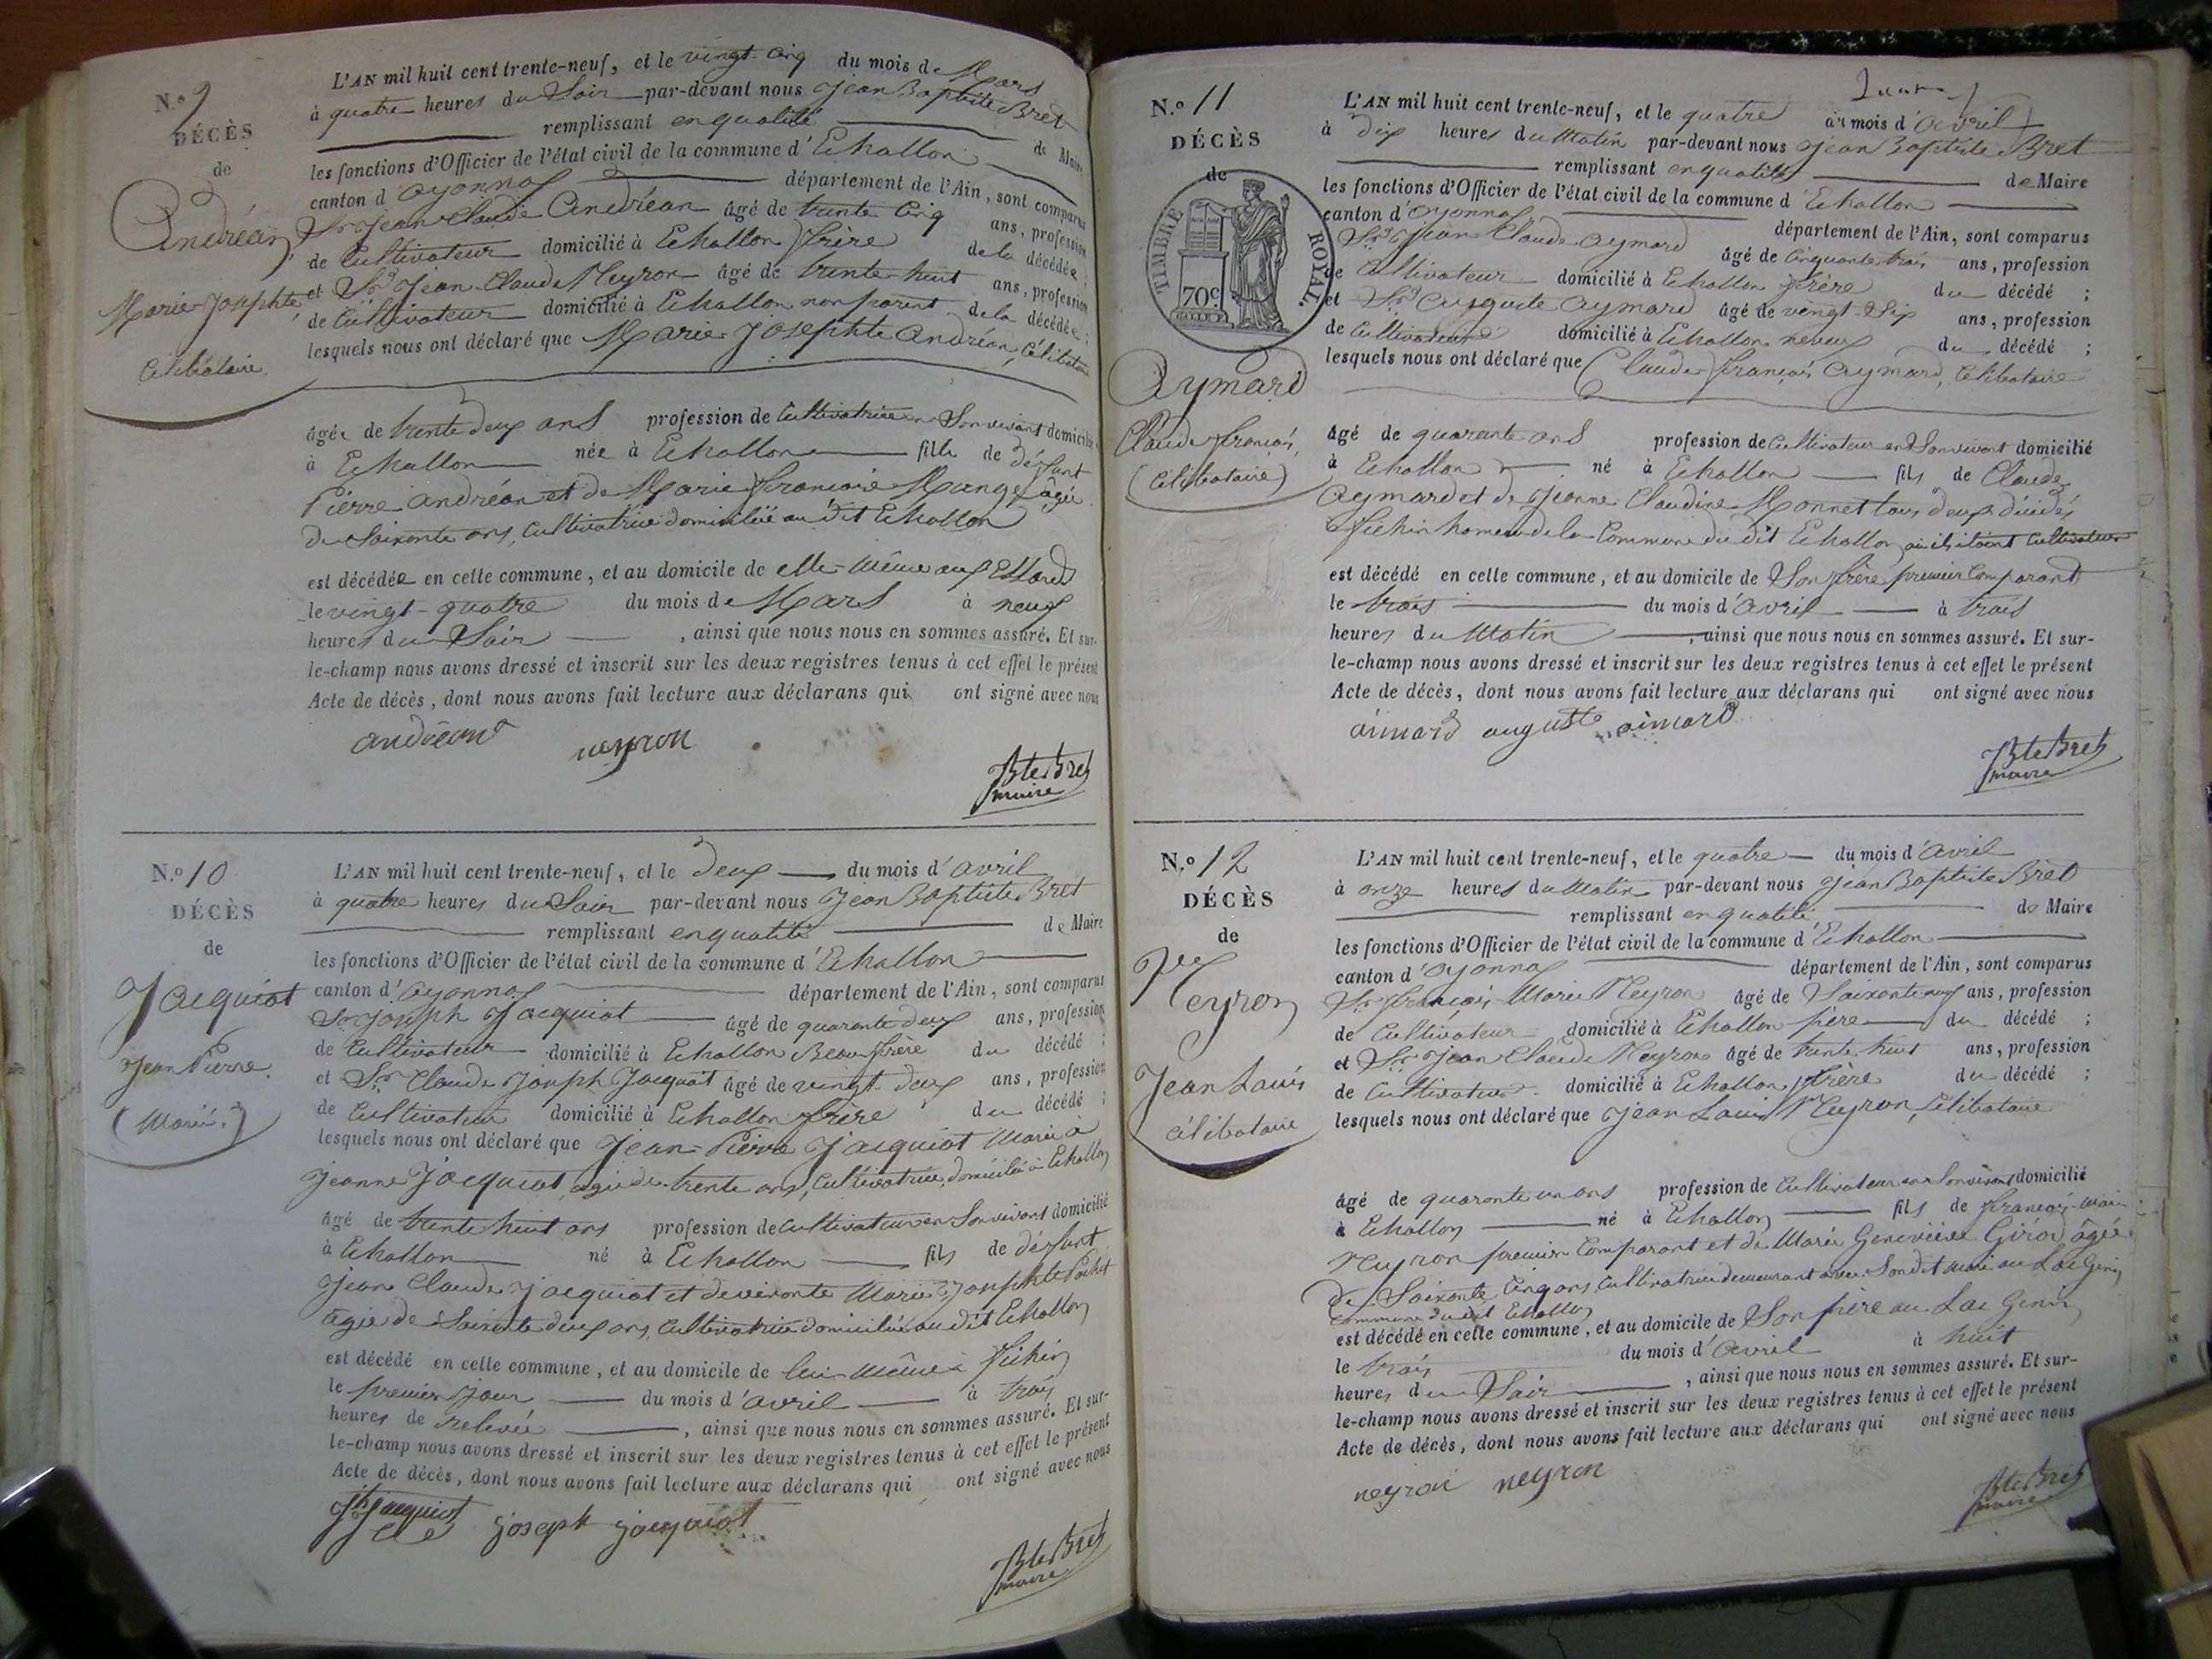 N.º 9
DÉCÈS
de
Andréan
Marie Josephte
Célibataire
L'AN mil huit cent trente-neuf, et le vingt cinq du mois de Mars
à quatre heures du Soir par-devant nous Jean Baptiste Bret
remplissant en qualité de Maire
les fonctions d'Officier de l'état civil de la commune d'Echallon
canton d'Oyonnax département de l'Ain, sont comparus
Sr Jean Claude Andréan âgé de trente cinq ans, profession
de Cultivateur domicilié à Echallon frère de la décédée
et Sr Jean Claude Neyron âgé de trente-huit ans, profession
de Cultivateur domicilié à Echallon non parent de la décédée ;
lesquels nous ont déclaré que Marie Josephte Andréan, Célibataire
âgée de trente deux ans profession de Cultivatrice en Son vivant domicilié
à Echallon née à Echallon fille de défunt
Pierre Andréan et de Marie françoise Mange âgée
de Soixante ans, Cultivatrice domiciliée au dit Echallon
est décédée en cette commune, et au domicile de elle-même aux
le vingt-quatre du mois de Mars à neuf
heures du Soir, ainsi que nous nous en sommes assuré. Et sur-
le-champ nous avons dressé et inscrit sur les deux registres tenus à cet effet le présent
Acte de décès, dont nous avons fait lecture aux déclarans qui ont signé avec nous
andréan neyron
Bte Bret
maire
N.º 10
DÉCÈS
de
Jacquiot
Jean Pierre
(Marié.)
L'AN mil huit cent trente-neuf, et le deux du mois d'avril
à quatre heures du Soir par-devant nous Jean Baptiste Bret
remplissant en qualité de Maire
les fonctions d'Officier de l'état civil de la commune d'Echallon
canton d'Oyonnax département de l'Ain, sont comparus
Sr Joseph Jacquiot âgé de quarante deux ans, profession
de Cultivateur domicilié à Echallon Beau frère du décédé ;
et Sr Claude Joseph Jacquiot âgé de vingt deux ans, profession
de Cultivateur domicilié à Echallon frère du décédé ;
lesquels nous ont déclaré que Jean-Pierre Jacquiot Marié à
Jeanne Jacquiot âgée de trente ans, Cultivatrice, domiciliée à Echallon
âgé de trente huit ans profession de Cultivateur en Son vivant domicilié
à Echallon né à Echallon fils de défunt
Jean Claude Jacquiot et de vivante Marie Josephte
âgée de Soixante deux ans, Cultivatrice domiciliée au dit Echallon
est décédé en cette commune, et au domicile de lui même à
le premier jour du mois d'avril à trois
heures de relevée, ainsi que nous nous en sommes assuré. Et sur-
le-champ nous avons dressé et inscrit sur les deux registres tenus à cet effet le présent
Acte de décès, dont nous avons fait lecture aux déclarans qui ont signé avec nous
Jh jacquiot joseph jacquiot
Bte Bret
maire
N.º 11
DÉCÈS
de
TIMBRE ROYAL.
70c
Aymard
Claude françois,
(Célibataire)
L'AN mil huit cent trente-neuf, et le quatre du mois d'avril
à dix heures du Matin par-devant nous Jean Baptiste Bret
remplissant en qualité de Maire
les fonctions d'Officier de l'état civil de la commune d'Echallon
canton d'Oyonnax département de l'Ain, sont comparus
Sr Jean Claude Aymard âgé de Cinquante trois ans, profession
de Cultivateur domicilié à Echallon frère du décédé ;
et Sr Auguste Aymard âgé de vingt-Six ans, profession
de Cultivateur domicilié à Echallon neveu du décédé ;
lesquels nous ont déclaré que Claude françois Aymard, Célibataire
âgé de quarante ans profession de Cultivateur en Son vivant domicilié
à Echallon né à Echallon fils de Claude
Aymard et de Jeanne Claudine Monnet tous deux décédés
hameau de la Commune du dit Echallon, où ils étaient Cultivateurs
est décédé en cette commune, et au domicile de Son frère premier Comparant
le trois du mois d'avril à trois
heures du Matin, ainsi que nous nous en sommes assuré. Et sur-
le-champ nous avons dressé et inscrit sur les deux registres tenus à cet effet le présent
Acte de décès, dont nous avons fait lecture aux déclarans qui ont signé avec nous
aimard auguste aimard
Bte Bret
maire
N.º 12
DÉCÈS
de
Neyron
Jean Louis
célibataire
L'AN mil huit cent trente-neuf, et le quatre du mois d'avril
à onze heures du Matin par-devant nous Jean Baptiste Bret
remplissant en qualité de Maire
les fonctions d'Officier de l'état civil de la commune d'Echallon
canton d'Oyonnax département de l'Ain, sont comparus
Sr françois Marie Neyron âgé de Soixante neuf ans, profession
de Cultivateur domicilié à Echallon père du décédé ;
et Sr Jean Claude Neyron âgé de trente huit ans, profession
de Cultivateur domicilié à Echallon, frère du décédé ;
lesquels nous ont déclaré que Jean Louis Neyron, Célibataire
âgé de quarante un ans profession de Cultivateur en Son vivant domicilié
à Echallon né à Echallon fils de françois-Marie
Neyron premier Comparant et de Marie Geneviève Girod âgée
de Soixante Cinq ans Cultivatrice demeurant avec Son dit mari au Lac Genin
Commune du dit Echallon
est décédé en cette commune, et au domicile de Son père au Lac Genin
le trois du mois d'avril à huit
heures du Soir, ainsi que nous nous en sommes assuré. Et sur-
le-champ nous avons dressé et inscrit sur les deux registres tenus à cet effet le présent
Acte de décès, dont nous avons fait lecture aux déclarans qui ont signé avec nous
neyron neyron
Bte Bret
maire